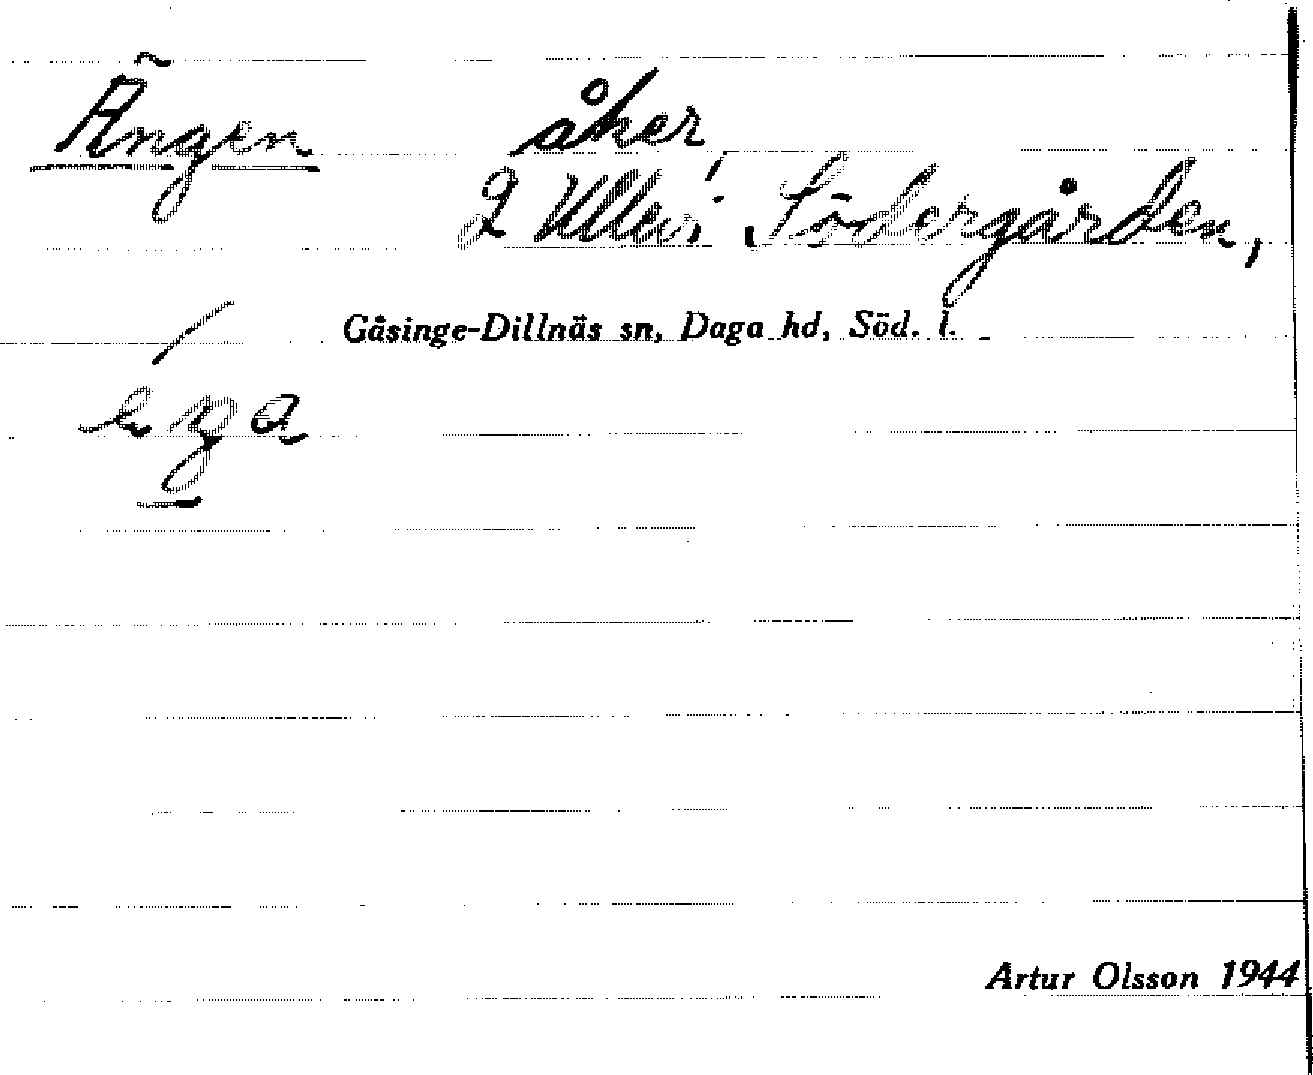 Ängen åker,
2 Ullevi, Södergården,
Gåsinge-Dillnäs sn, Daga hd, Söd. l.
Artur Olsson 1944